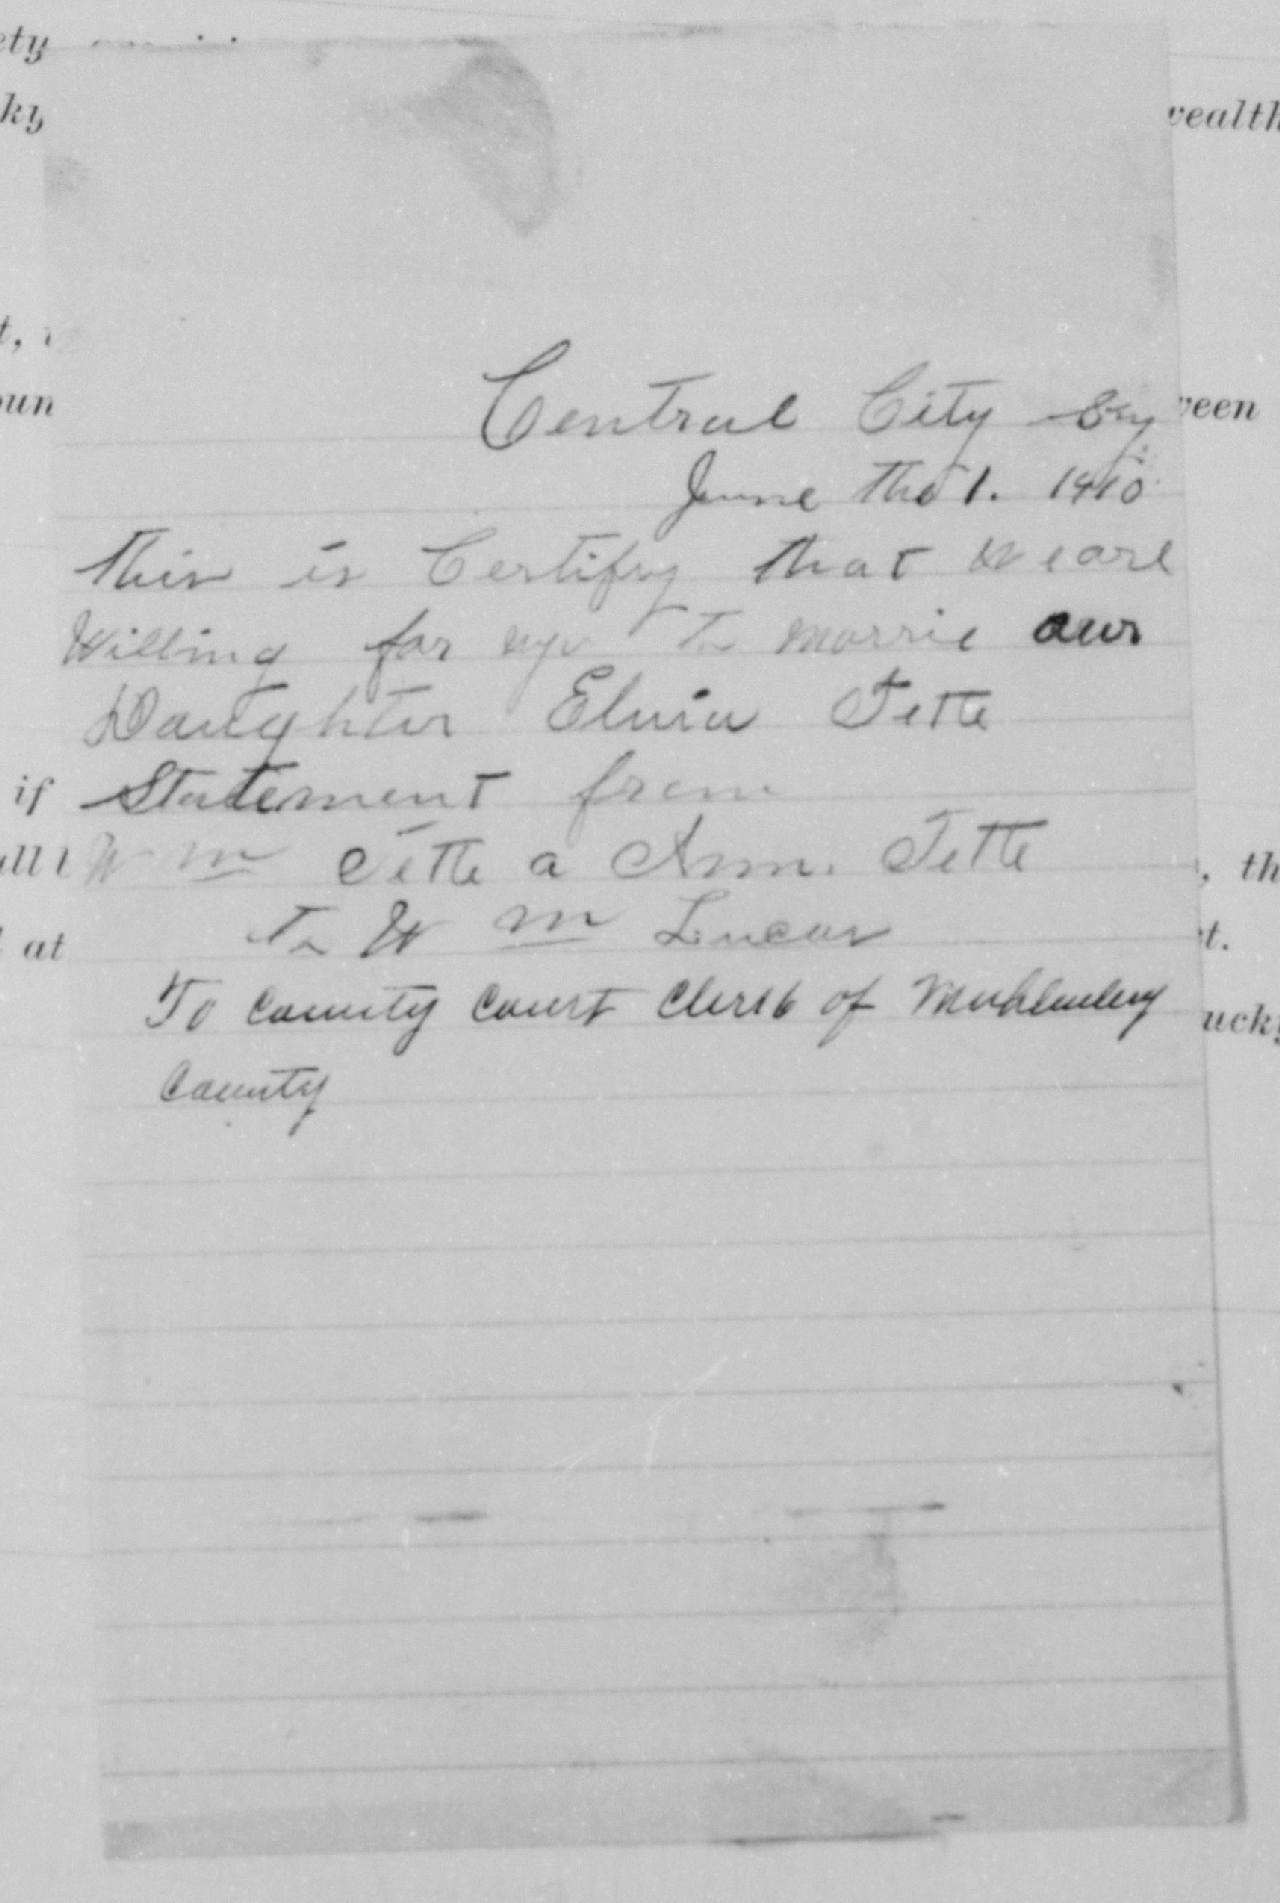 ety
ky
wealth
t,
oun
veen
Central City Ky
June the 1. 1910
this is Certify that we are
Willing for you to marrie our
Daughter Elvia Tette
if
Statement from
all
Wm Tette a Ann. Tette
, th
to Wm Lucas
at
t.
To county court clerk of Muhlenberg
ucky
county